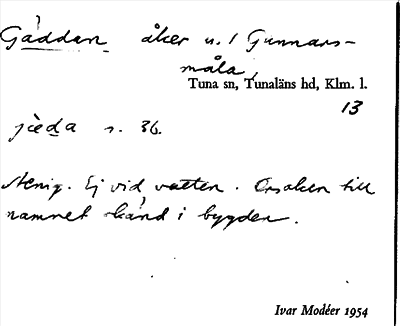 Gäddan åker u. 1 Gunnars-
måla
Tuna sn, Tunaläns hd, Klm. l.
13
jæ̀da s. 36.
Stenig. Ej vid vatten. Orsaken till
namnet okänd i bygden.
Ivar Modéer 1954